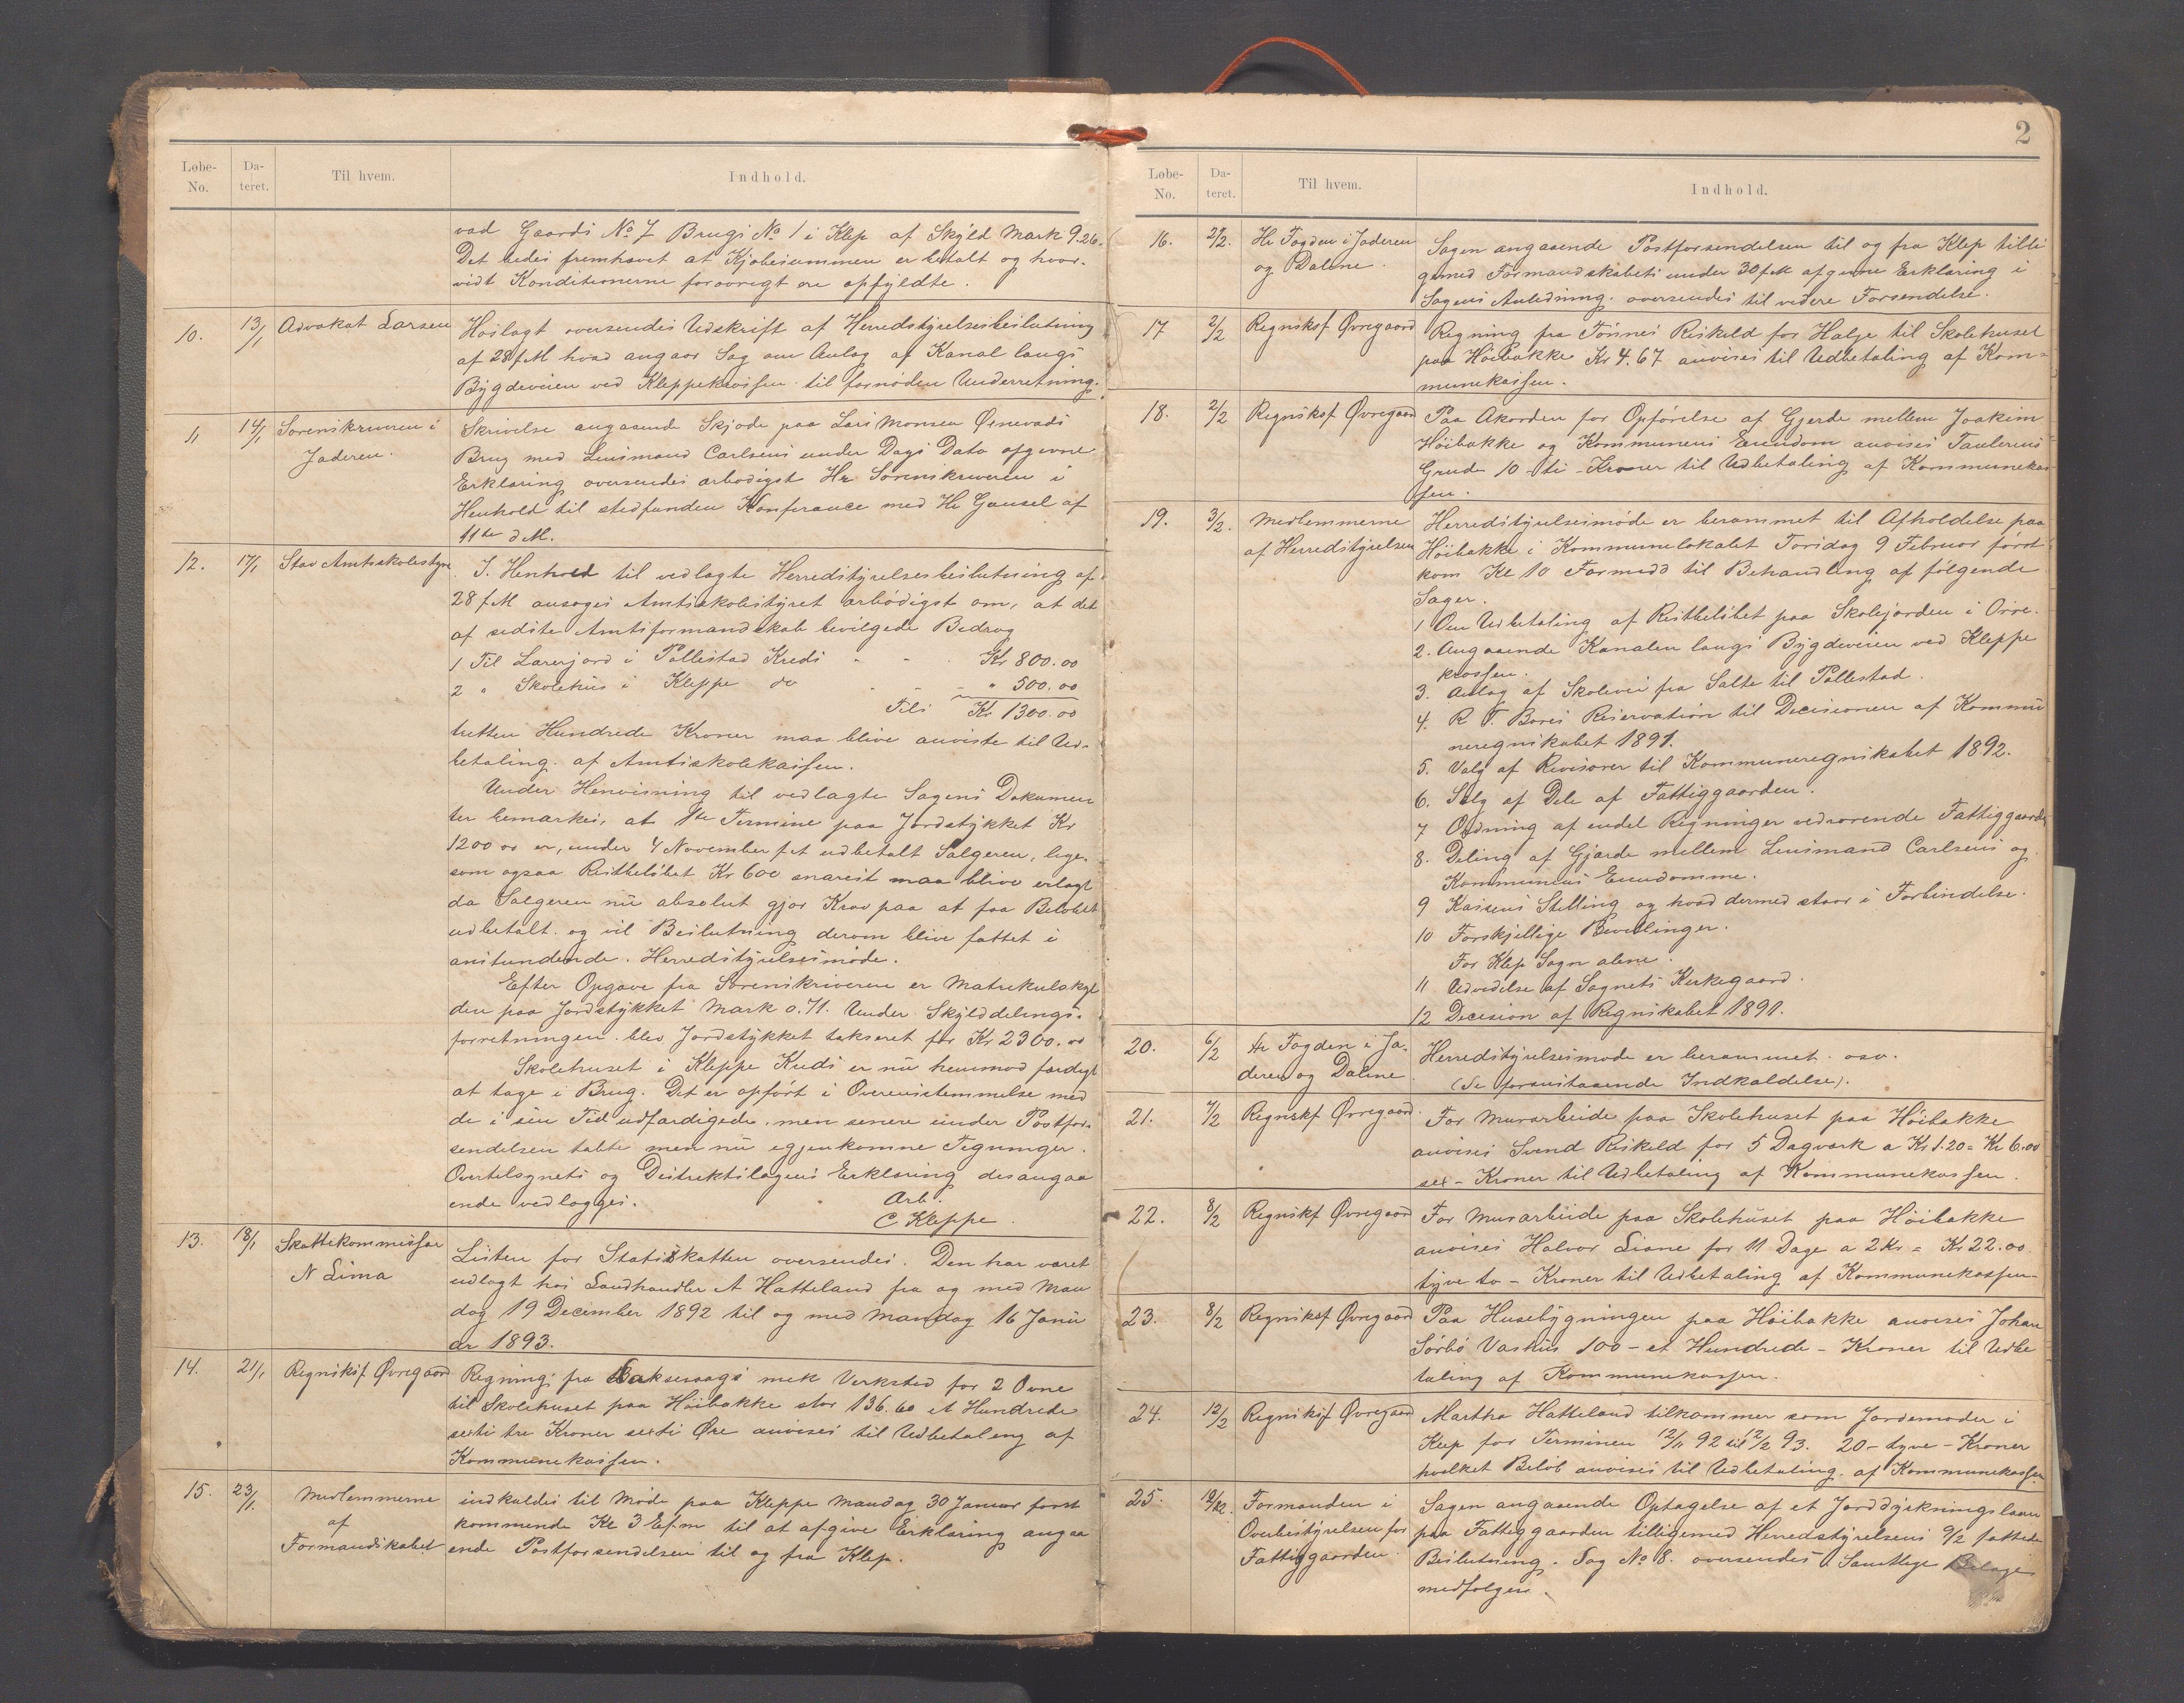 Løbe-No. Dateret. Til hvem. Indhold.
vad Gaards No 7 Brugs No 1 i Klep af Skyld Mark 9.26.
Det bedes fremhævet at Kjøbesummen er betalt og hvor-
vidt Konditionerne forøvrigt ere opfyldte.
10. 13/1 Advokat Larsen Høilagt oversendes Udskrift af Herredstyrelsesbeslutning
af 28 f.M hvad angaar Sag om Anlæg af Kanal langs
Bygdeveien ved Kleppekrossen til fornøden Underretning.
11 14/1 Sorenskriveren i Jæderen. Skrivelse angaaende Skjøde paa Lars Monsen Ørnevads
Brug med Lensmand Carlsens under Dags Dato afgivne
Erklæring oversendes ærbødigst Hr Sorenskriveren i
Henhold til stedfunden Konferance med Hr Gausel af
11te d.M.
12. 17/1 Stav Amtsskolestyre I Henhold til vedlagte Herredstyrelsesbeslutning af
28 f.M ansøges Amtsskolestyret ærbødigst om, at det
af sidste Amtsformandskab bevilgede Bedrag
1 Til Lærerjord i Pollestad Kreds - - Kr 800.00
2 " Skolehus i Kleppe do - - " 500.00
Tils Kr 1300.00
tretten Hundrede Kroner maa blive anviste til Ud-
betaling af Amtsskolekassen.
Under Henvisning til vedlagte Sagens Dokumen
ter bemærkes, at 1ste Termine paa Jordstykket Kr
1200.00 er, under 4 November f.A udbetalt Sælgeren, lige-
som ogsaa Restbeløbet Kr 600 snarest maa blive erlagt
da Sælgeren nu absolut gjør Krav paa at faa Beløbet
udbetalt og vil Beslutning derom blive fattet i
anstundende Herredstyrelsesmøde.
Efter Opgave fra Sorenskriveren er Matrikulskyl
den paa Jordstykket Mark 0.71. Under Skylddelings-
forretningen blev Jordstykket takseret for Kr 2300.00
Skolehuset i Kleppe Kreds er nu henimod færdigt
at tage i Brug. Det er opført i Overensstemmelse med
de i sin Tid udfærdigede, men senere under Postfor-
sendelsen tabte men nu egjenkomne Tegninger.
Overtilsynets og Distriktslægens Erklæring desangaa
ende vedlægges.
Ærb.
C Kleppe.
13. 18/1 Skattekommissær N Lima Listen for Statsskatten oversendes. Den har været
udlagt hos Landhandler A Hatteland fra og med Man
dag 19 December 1892 til og med Mandag 16 Janu
ar 1893.
14. 21/1 Regnsksf Øvregaard Regning fra Kakseraags mek Verksted for 2 Ovne
til Skolehuset paa Høibakke stor 136.60 et Hundrede
sexti tre Kroner sexti Øre anvises til Udbetaling af
Kommunekassen.
15. 23/1. Medlemmerne af Formandskabet indkaldes til Møde paa Kleppe Mandag 30 Januar først
kommende Kl 3 Ef.m til at afgive Erklæring angaa
ende Postforsendelsen til og fra Klep.
2
Løbe-No. Dateret. Til hvem. Indhold.
16. 2/2. Hr Fogden i Jæderen og Dalene. Sagen angaaende Postforsendelsen til og fra Klep tilli
gemed Formandskabets under 30 f.M afgivne Erklæring i
Sagens Anledning. oversendes til videre Forsendelse.
17 2/2 Regnsksf Øvregaard Regning fra Tønnes Riskeld for Halge til Skolehuset
paa Høibakke Kr 4.67 anvises til Udbetaling af Kom-
munekassen.
18. 2/2 Regnsksf Øvregaard Paa Akorden for Opførelse af Gjerde mellem Joakim
Høibakke og Kommunens Eiendom anvises Taulerus
Grude 10 - ti - Kroner til Udbetaling af Kommunekas
sen.
19. 3/2. Medlemmerne af Herredstyrelsen Herredstyrelsesmøde er berammet til Afholdelse paa
Høibakke i Kommunelokalet Torsdag 9 Februar først
kom Kl 10 Formidd til Behandling af følgende
Sager.
1 Om Udbetaling af Restbeløbet paa Skolejorden i Orre.
2. Angaaende Kanalen langs Bygdeveien ved Kleppe
krossen.
3. Anlæg af Skolevei fra Salte til Pollestad.
4. R T. Bores Reservation til Decisionen af Kommu
neregnskabet 1891.
5. Valg af Revisorer til Kommuneregnskabet 1892.
6. Salg af Dele af Fattiggaarden.
7 Ordning af endel Regninger vedrørende Fattiggaarden
8. Deling af Gjærde mellem Lensmand Carlsens og
Kommunens Eiendomme.
9 Kassens Stilling og hvad dermed staar i Forbindelse.
10 Forskjellige Bevillinger.
For Klep Sogn alene.
11 Udvidelse af Sognets Kirkegaard.
12 Decision af Regnskabet 1891.
20. 6/2 Hr Fogden i Jæderen og Dalene Herredstyrelsesmøde er berammet. osv.
(Se foranstaaende Indkaldelse).
21. 7/2 Regnskf Øvregaard. For Murarbeide paa Skolehuset paa Høibakke
anvises Svend Riskeld for 5 Dagværk a Kr 1.20 = Kr 6.00
sex - Kroner til Udbetaling af Kommunekassen.
22. 8/2 Regnskf Øvregaard For Murarbeide paa Skolehuset paa Høibakke
anvises Halvor Liane for 11 Dage a 2 Kr = Kr 22.00.
tyve to - Kroner til Udbetaling af Kommunekassen.
23. 8/2 Regnsksf Øvregaard Paa Husebygningen paa Høibakke anvises Johan
Sørbø Vashus 100 - et Hundrede - Kroner til Udbe
taling af Kommunekassen.
24. 12/2 Regnsksf Øvregaard Martha Hatteland tilkommer som Jordemoder i
Klep for Terminen 12/11 92 til 12/2 93. 20 - tyve - Kroner
hvilket Beløb anvises til Udbetaling af Kommunekassen
25. 12/2. Formanden i Overbestyrelsen for Fattiggaarden. Sagen angaaende Optagelse af et Jorddyrkningslaan
paa Fattiggaarden tilligemed Herredstyrelsens 9/2 fattede
Beslutning. Sag No 8. oversendes. Samtlige Bilage
medfølger.